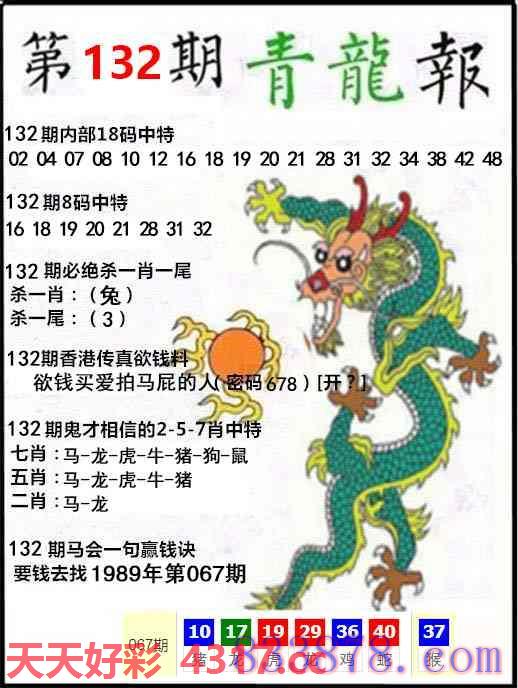 第132期青龍報
132期内部18码中特
02 04 07 08 10 12 16 18 19 20 21 28 31 32 34 38 42 48
132期8码中特
16 18 19 20 21 28 31 32
132期必绝杀一肖一尾
杀一肖：（兔）
杀一尾：（3）
132期香港传真欲钱料
欲钱买爱拍马屁的人（密码678）[开？]
132期鬼才相信的2-5-7肖中特
七肖：马-龙-虎-牛-猪-狗-鼠
五肖：马-龙-虎-牛-猪
二肖：马-龙
132期马会一句赢钱诀
要钱去找1989年第067期
10 17 19 29 36 40 37
067期 猪 龙 虎 龙 鸡 蛇 猴
天天好彩 4317.cc